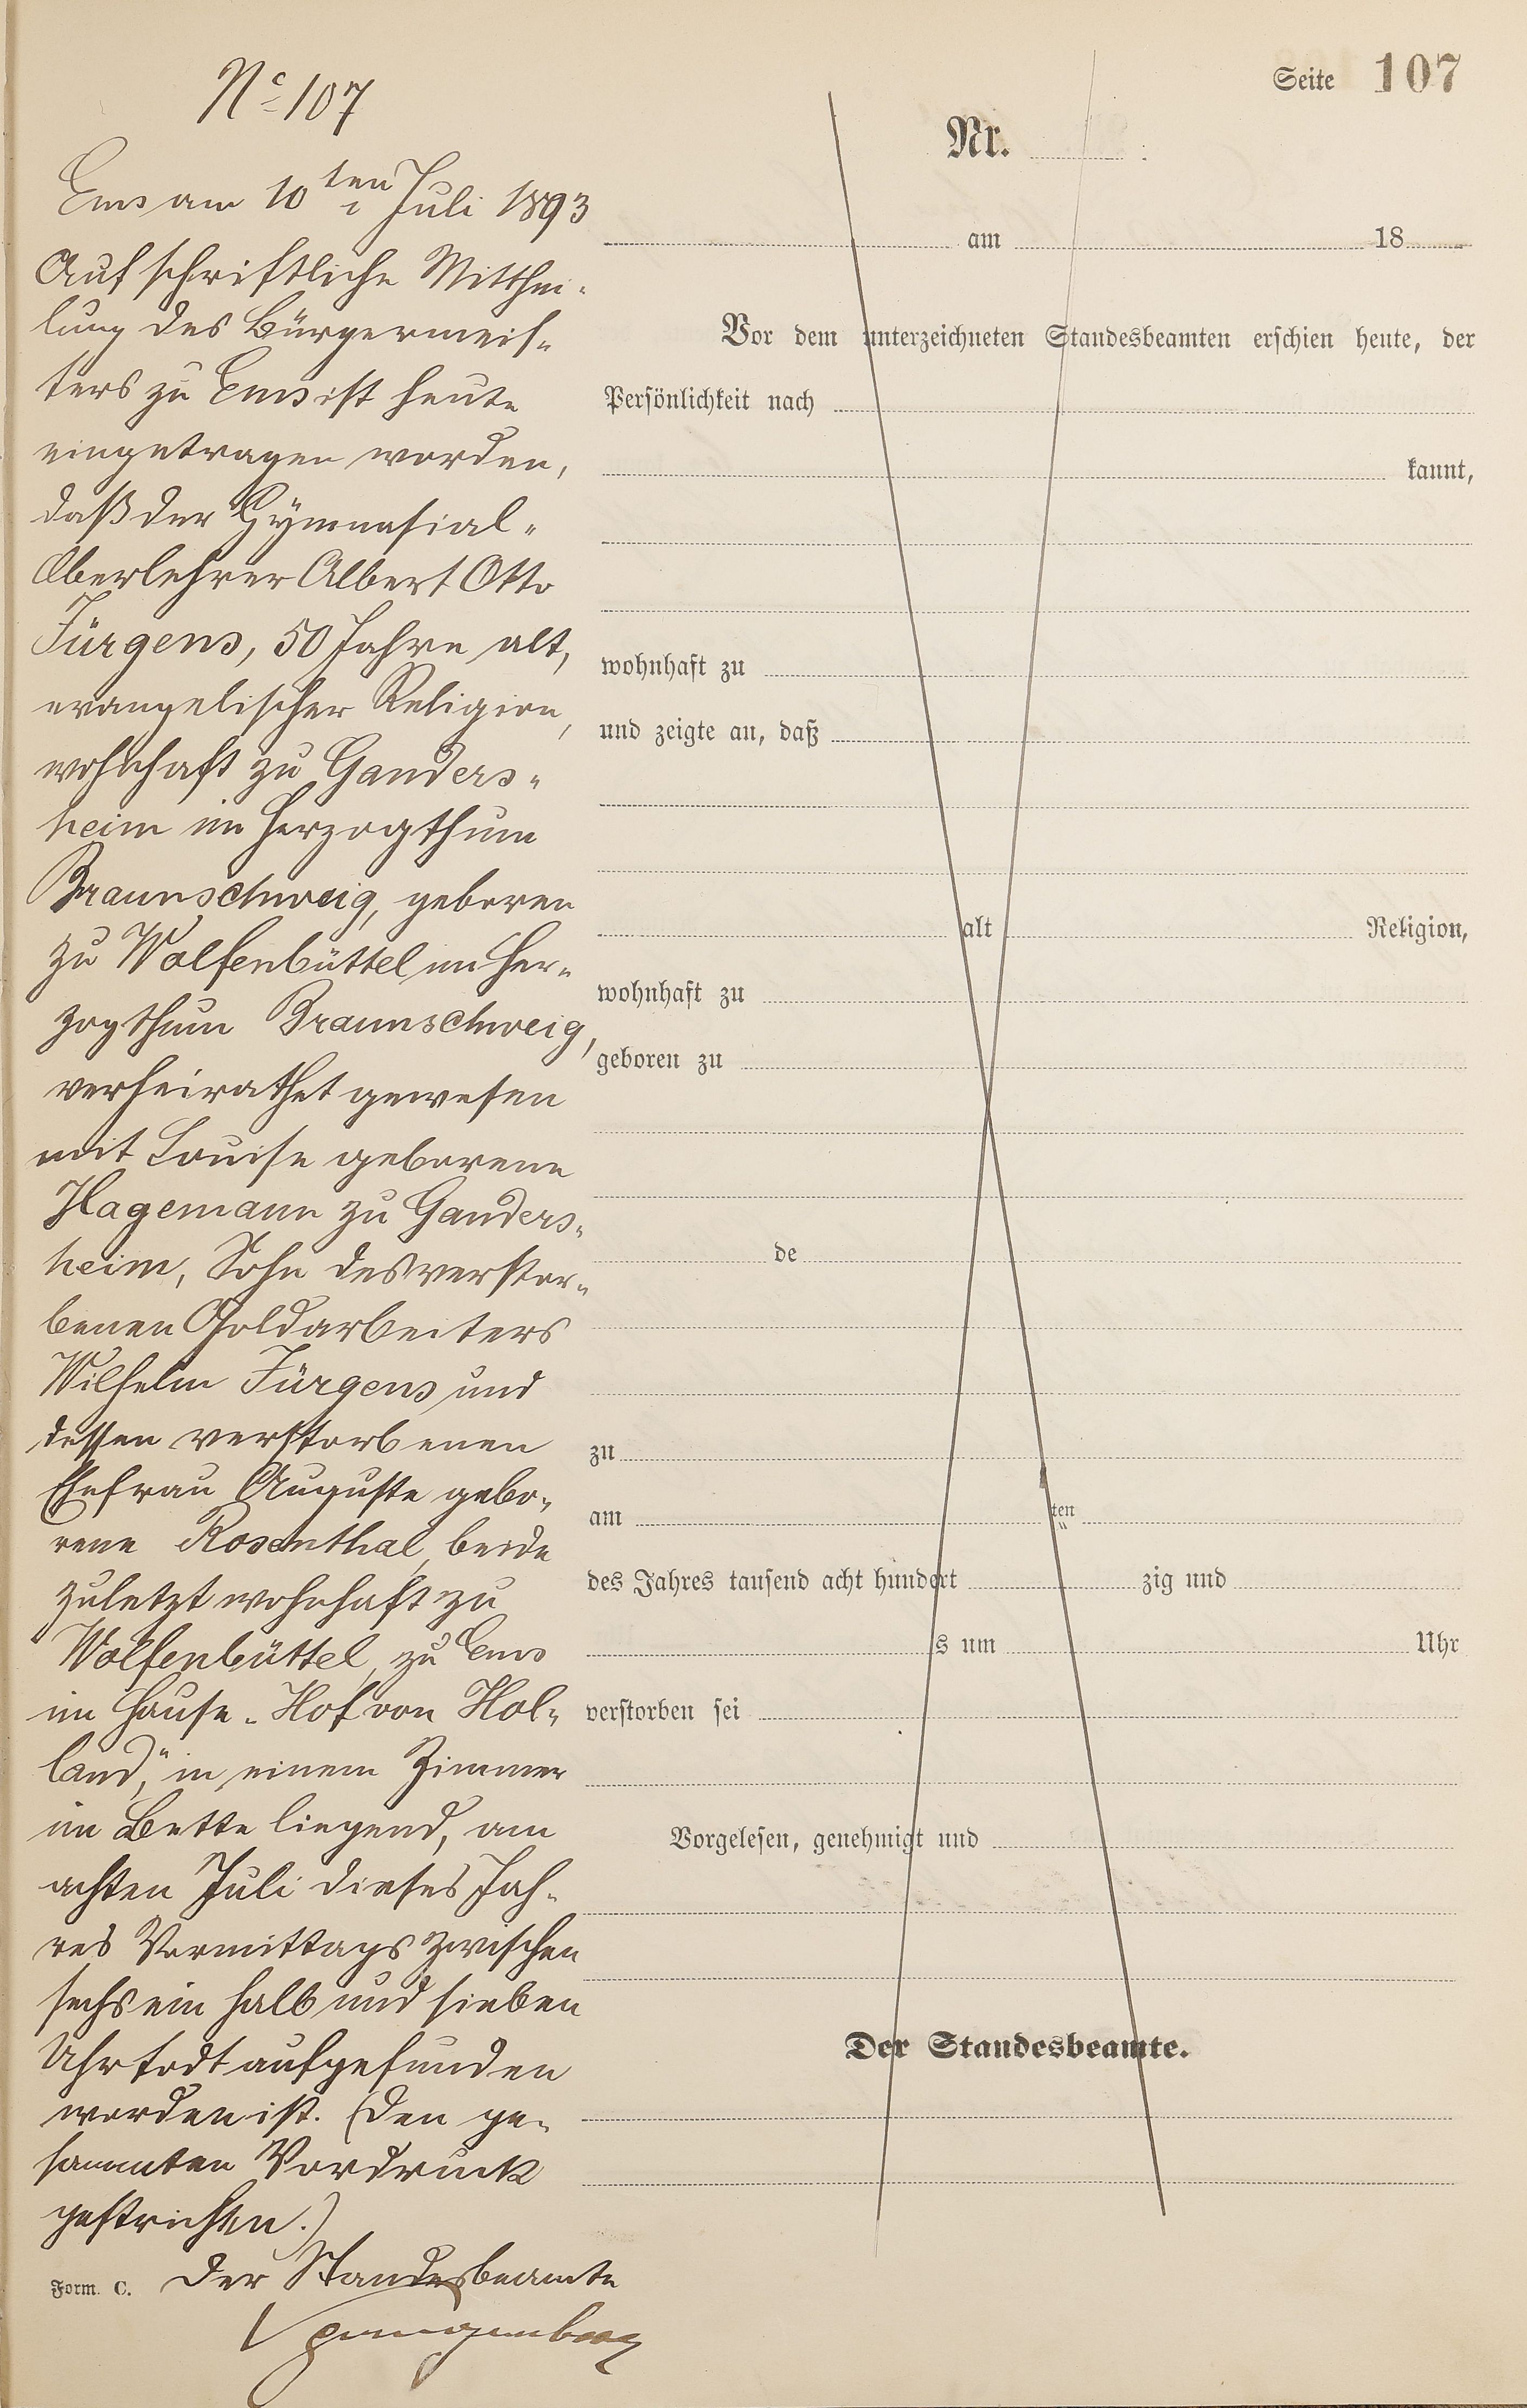 Seite 107
Nc 107
Ems am 10ten Juli 1893
Auf schriftliche Mitthei-
lung des Bürgermeis-
ters zu Ems ist heute
eingetragen worden,
daß der Gymnasial-
Oberlehrer Albert Otto
Jürgens, 50 Jahre alt,
evangelischer Religion,
wohnhaft zu Ganders-
heim im Herzogthum
Braunschweig, geboren
zu Wolfenbüttel im Her-
zogthum Braunschweig,
verheirathet gewesen
mit Louise geborene
Hagemann zu Ganders-
heim, Sohn des verstor-
benen Goldarbeiters
Wilhelm Jürgens und
dessen verstorbenen
Ehefrau Auguste gebo-
rene Rosenthal, beide
zuletzt wohnhaft zu
Wolfenbüttel, zu Ems
im Hause "Hof von Hol-
land", in einem Zimmer
im Bette liegend, am
achten Juli dieses Jah-
res Vormittags zwischen
sechs ein halb und sieben
Uhr todt aufgefunden
worden ist. (Den ge-
sammten Vordruck
gestrichen.)
Der Standesbeamte
Form. C.
Nr.
am 18
Vor dem unterzeichneten Standesbeamten erschien heute, der
Persönlichkeit nach
kannt,
wohnhaft zu
und zeigte an, daß
alt Religion,
wohnhaft zu
geboren zu
de
zu
am ten
des Jahres tausend acht hundert zig und
s um Uhr
verstorben sei
Vorgelesen, genehmigt und
Der Standesbeamte.